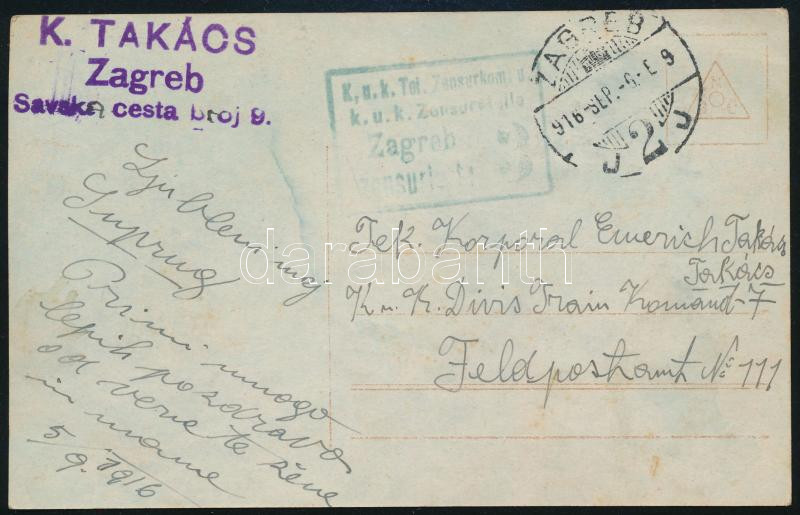 K. TAKÁCS
Zagreb
Savska cesta broj 9.
K. u. k. Tel. Zensurkom
k. u. k. Zensurstelle
Zagreb
zensuriert
ZAGREB
916 SEP.-6.-E 9
2
Ljubljeni moj
Suprug
Primi mnogo
lepih pozdrava
od verne te žene
in mame
5/9. 1916
Tek. Korporal Emerich Takács
Takács
K. u. K. Divis Train Komand-7
Feldpostamt No 111
darabanth